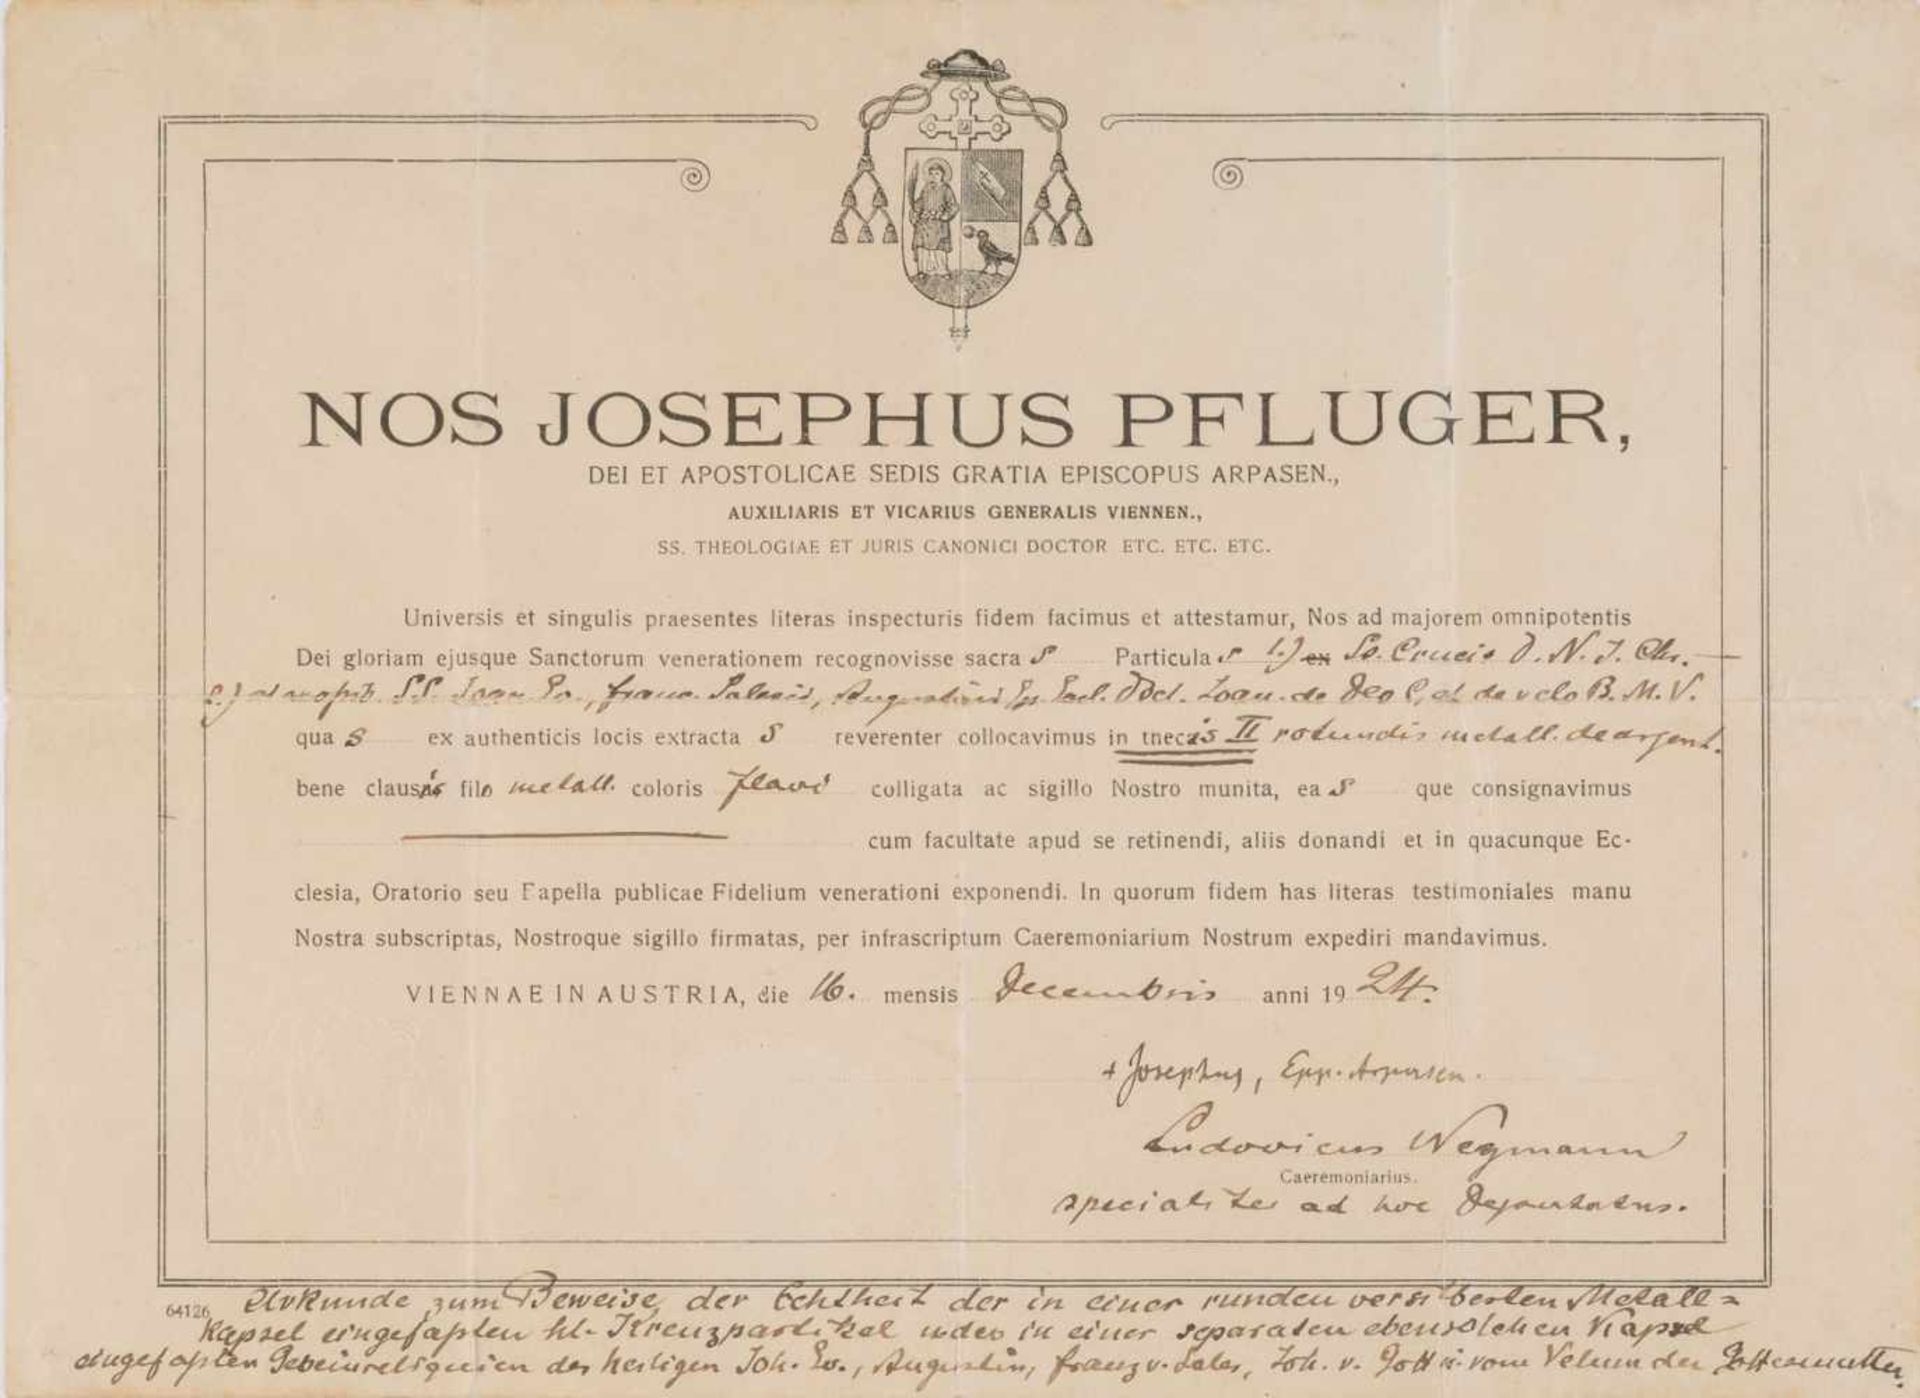 NOS JOSEPHUS PFLUGER,
DEI ET APOSTOLICAE SEDIS GRATIA EPISCOPUS ARPASEN.,
AUXILIARIS ET VICARIUS GENERALIS VIENNEN.,
SS. THEOLOGIAE ET JURIS CANONICI DOCTOR ETC. ETC. ETC.
Universis et singulis praesentes literas inspecturis fidem facimus et attestamur, Nos ad majorem omnipotentis
Dei gloriam ejusque Sanctorum venerationem recognovisse sacra s Particula s 1.) ex Ss. Crucis D. N. J. Chr.
2.) S.S. Joan. Ev., Franc. Salesii, Augustini Ep. Eccl. Doct. Joan. de Deo C. et de velo B. M. V.
qua s ex authenticis locis extracta s reverenter collocavimus in thecis II rotundis metall. deargent.
bene clausis filo metall. coloris flavi colligata ac sigillo Nostro munita, ea s que consignavimus
cum facultate apud se retinendi, aliis donandi et in quacunque Ec-
clesia, Oratorio seu Capella publicae Fidelium venerationi exponendi. In quorum fidem has literas testimoniales manu
Nostra subscriptas, Nostroque sigillo firmatas, per infrascriptum Caeremoniarium Nostrum expediri mandavimus.
VIENNAE IN AUSTRIA, die 16. mensis Decembris anni 19 24.
+ Josephus, Epp. Arpasen.
Ludovicus Wegmann
Caeremoniarius.
specialiter ad hoc Deputatus.
64126 Urkunde zum Beweise der Echtheit der in einer runden versilberten Metall=
kapsel eingefaßten hl. Kreuzpartikel u. der in einer separaten ebensolchen Kapsel
eingefaßten Gebeinreliquien der heiligen Joh. Ev., Augustin, Franz v. Sales, Joh. v. Gott u. vom Velum der Gottesmutter.